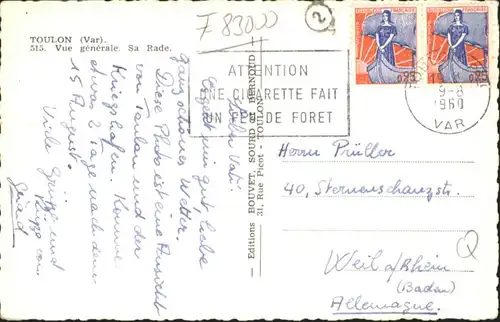 TOULON (Var).
515. Vue générale. Sa Rade.
F 83000
2
REPUBLIQUE FRANÇAISE
0,25
VAR
9-8
1960
ATTENTION
UNE CIGARETTE FAIT
UN FEU DE FORET
Editions BOUVET, SOURD et BERNOUD
31, Rue Picot - TOULON
Lieber Vati!
Es geht mir gut, liebe
ganz schönes Wetter.
Diese Photo ist eine Ansicht
von Toulon und der
Kriegshafen. Komme
etwa 2 Tage nach dem
15 August.
Viele Grüsse und
Küsse von
Herrn Prüller
40, Sternenschanzstr.
Weil a/Rhein
(Baden)
Allemagne.
Q